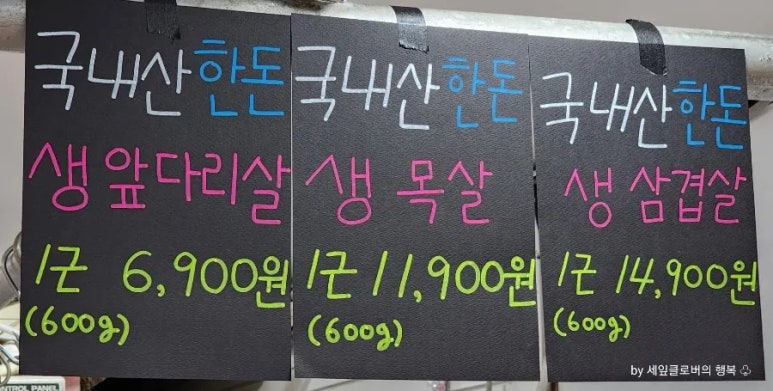 국내산 한돈
생 앞다리살
1근 6,900원
(600g)
국내산 한돈
생 목살
1근 11,900원
(600g)
국내산 한돈
생 삼겹살
1근 14,900원
(600g)
CONTROL PANEL
by 세잎클로버의 행복 ♧